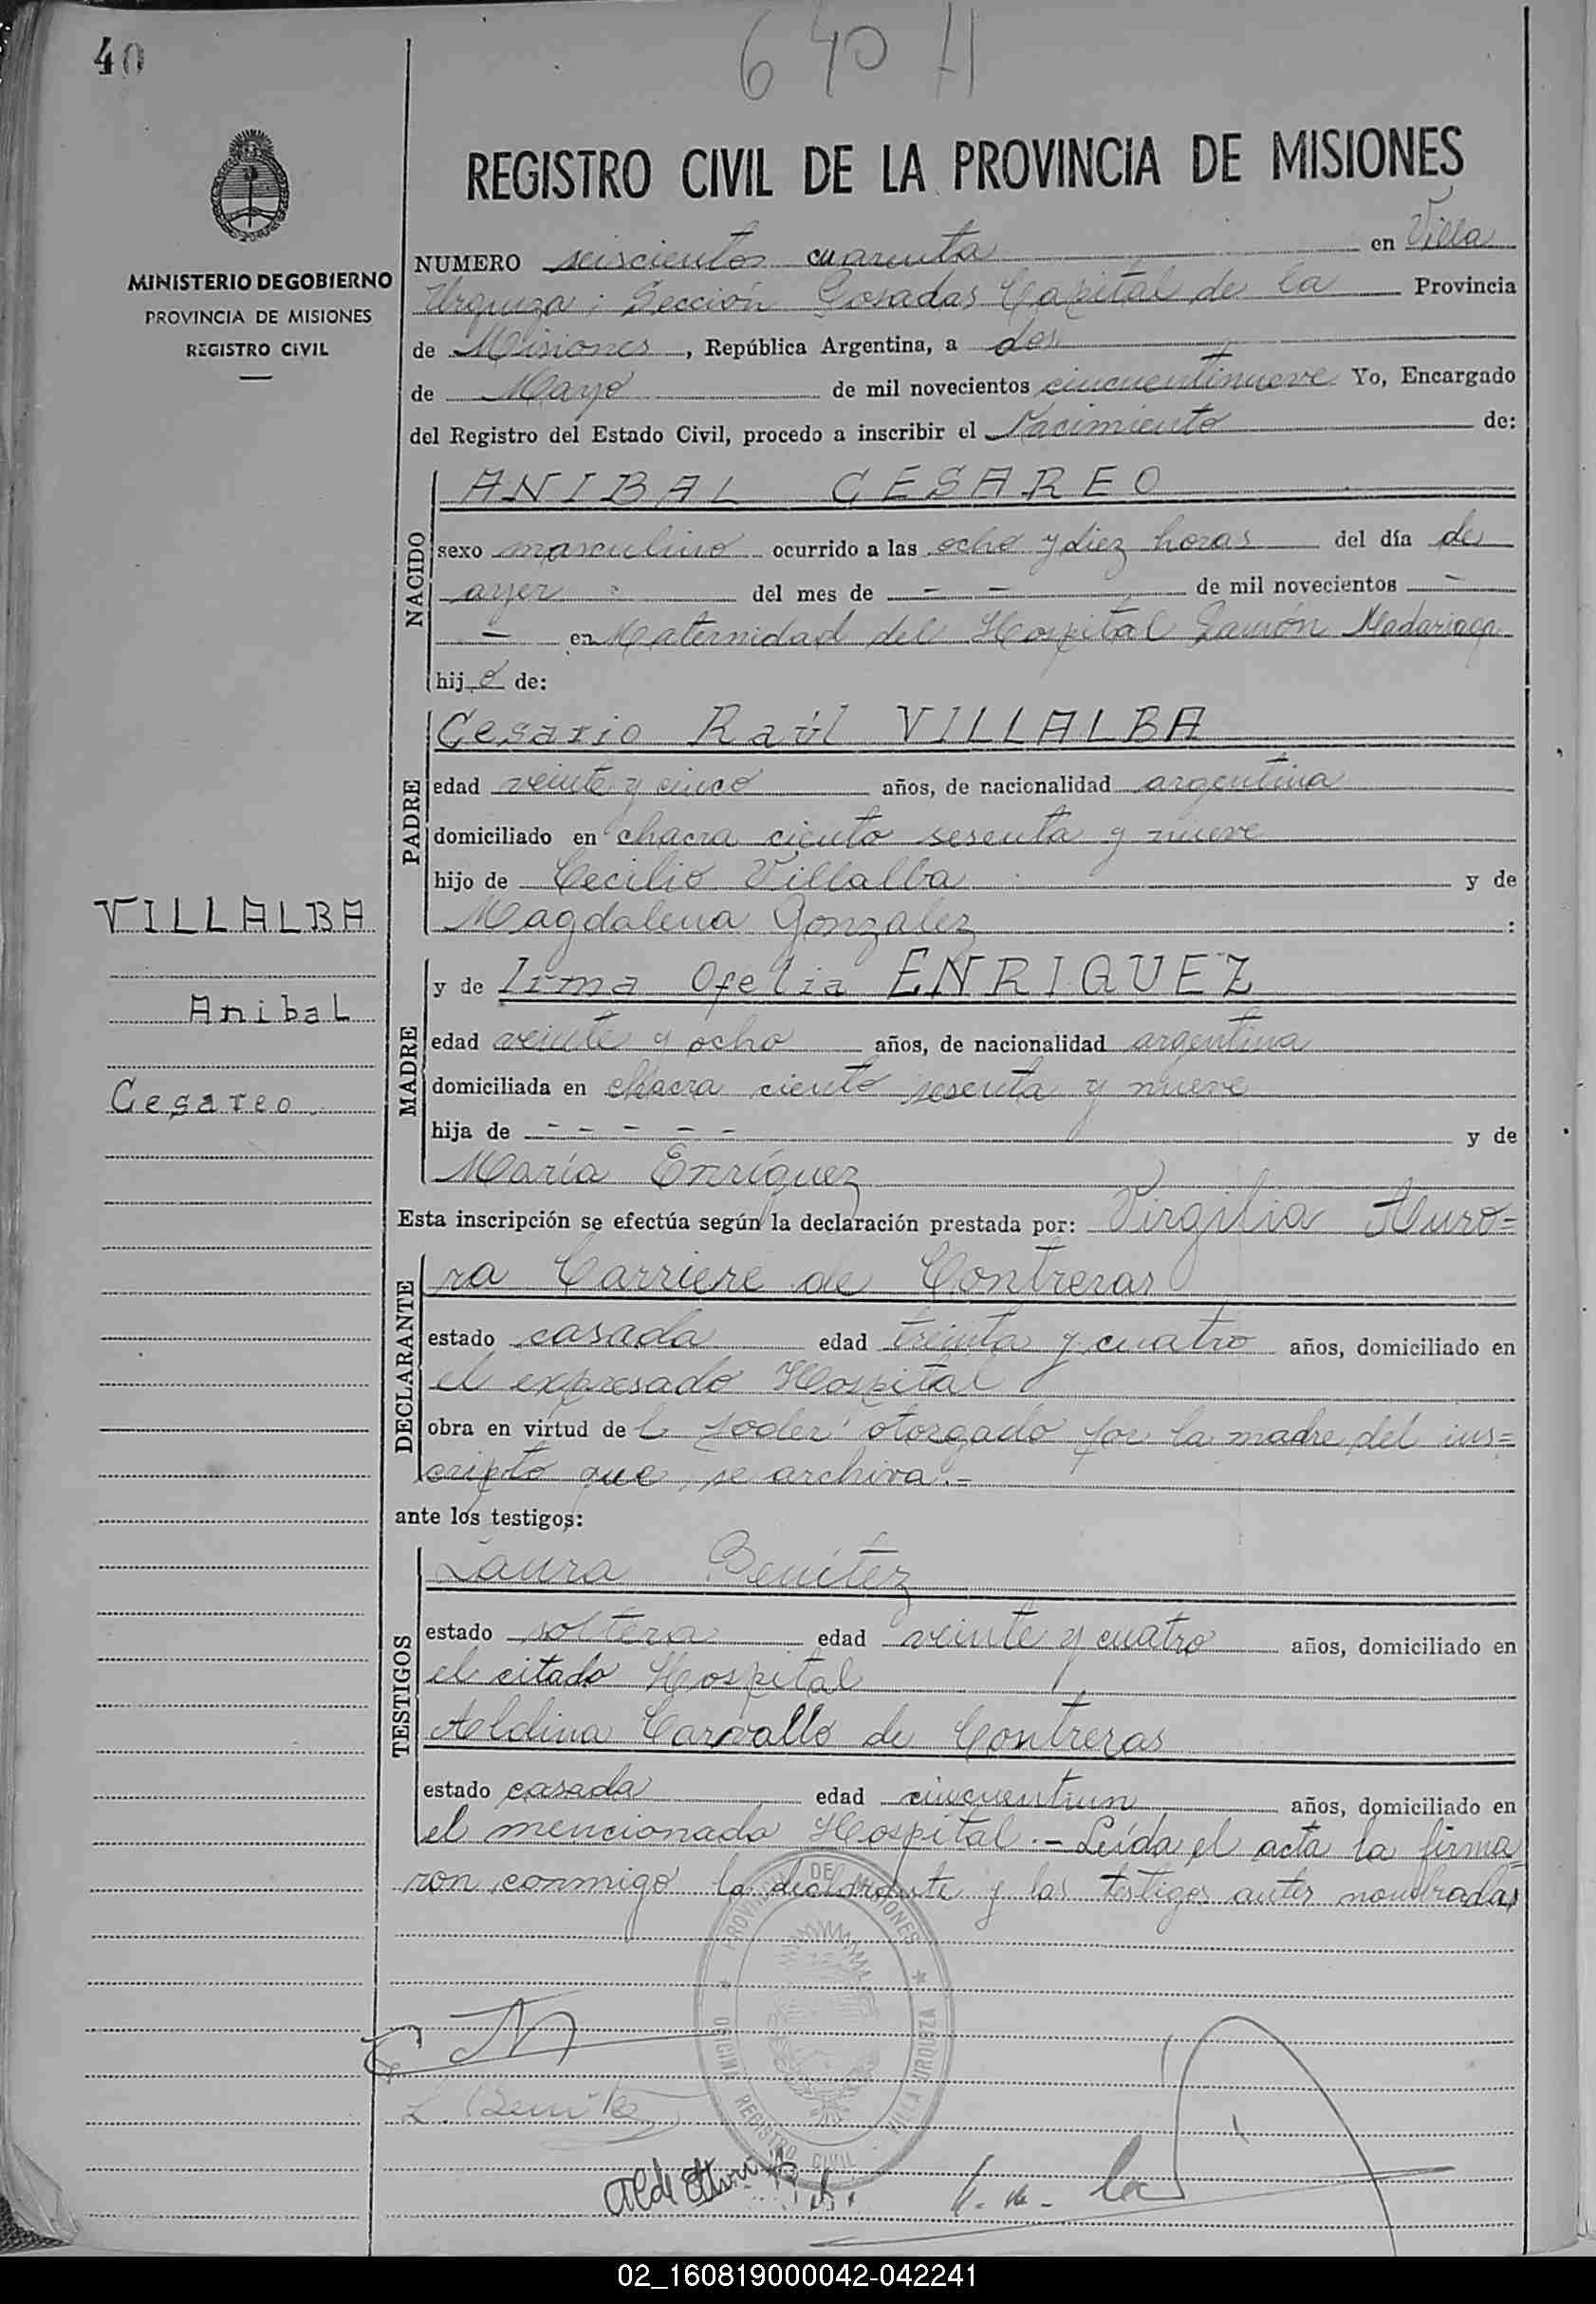 40
640 H
MINISTERIO DE GOBIERNO
PROVINCIA DE MISIONES
REGISTRO CIVIL
REGISTRO CIVIL DE LA PROVINCIA DE MISIONES
NUMERO seiscientos cuarenta en Villa
Urquiza; Sección Posadas Capital de la Provincia
de Misiones, República Argentina, a dos
de Mayo de mil novecientos cincuentinueve Yo, Encargado
del Registro del Estado Civil, procedo a inscribir el Nacimiento de:
NACIDO
ANIBAL CESAREO
sexo masculino ocurrido a las ocho y diez horas del día de
ayer del mes de - - de mil novecientos -
- en Maternidad del Hospital Ramón Madariaga
hijo de:
PADRE
Cesario Raúl VILLALBA
edad veinte y cinco años, de nacionalidad argentina
domiciliado en chacra ciento sesenta y nueve
hijo de Cecilio Villalba y de
Magdalena Gonzalez :
VILLALBA
Anibal
Cesareo
MADRE
y de Irma Ofelia ENRIQUEZ
edad veinte y ocho años, de nacionalidad argentina
domiciliada en chacra ciento sesenta y nueve
hija de - - - - - y de
María Enríquez
Esta inscripción se efectúa según la declaración prestada por: Virgilia Auro=
DECLARANTE
ra Carriere de Contreras
estado casada edad treinta y cuatro años, domiciliado en
el expresado Hospital
obra en virtud de l poder otorgado por la madre del ins=
cripto que se archiva.-
ante los testigos:
TESTIGOS
Laura Benítez
estado soltera edad veinte y cuatro años, domiciliado en
el citado Hospital
Aldina Carvallo de Contreras
estado casada edad cincuentiun años, domiciliado en
el mencionado Hospital.- Leída el acta la firma=
ron conmigo la declarante y las testigos antes nombradas
PROVINCIA DE MISIONES
OFICINA REGISTRO CIVIL VILLA URQUIZA
L. Benitez
02_160819000042-042241